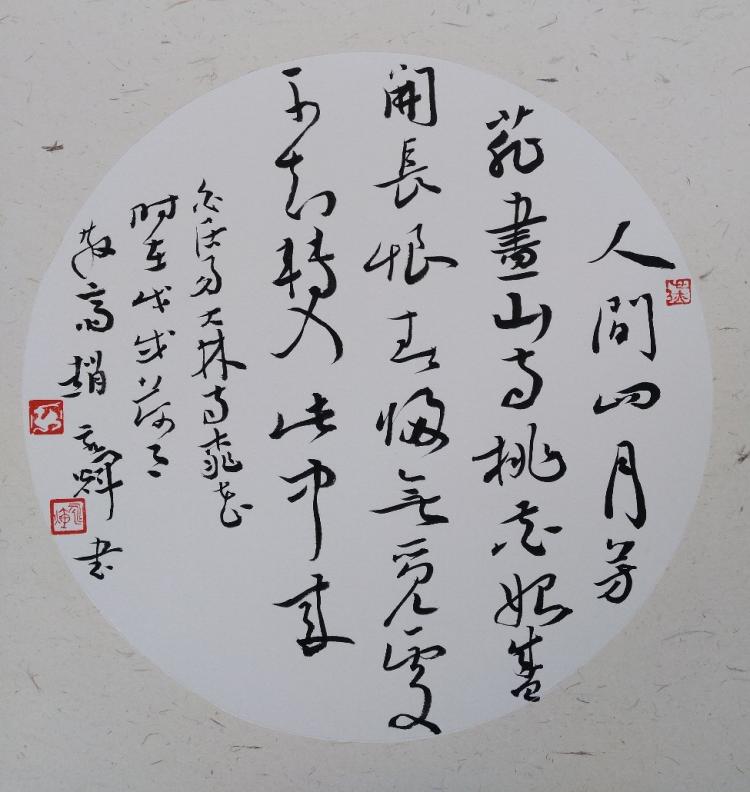 人間四月芳
菲畫山寺桃花始盛
開長恨春歸無覓處
不知轉入此中來
白居易大林寺桃花
时在戊戌荷月
高趙书